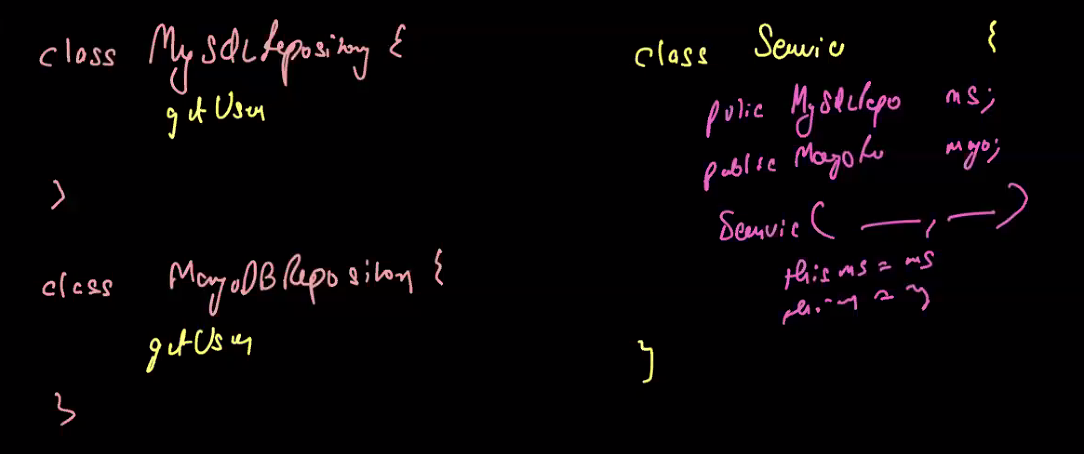 class MySQLRepository {
getUser
}
class MongoDBRepository {
getUser
}
class Service {
pulic MySQLRepo ms;
public Mongo mgo;
Service( __ , __ )
this ms = ms
}